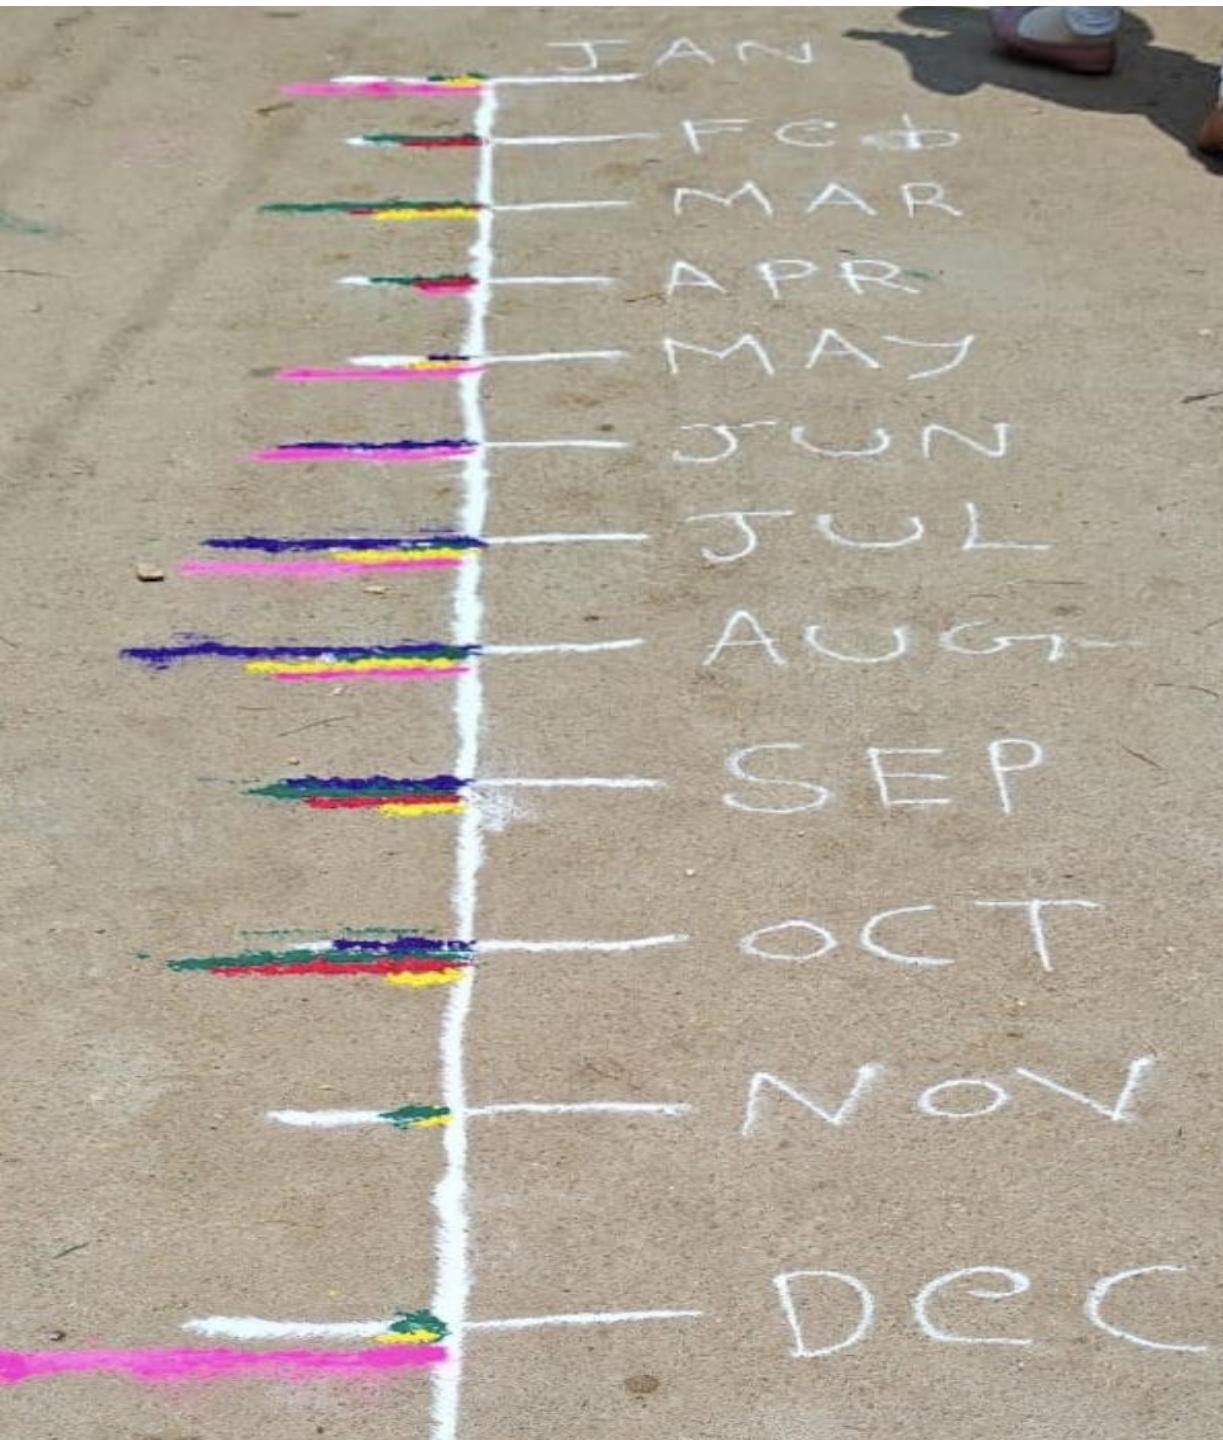 JAN
FEB
MAR
APR
MAY
JUN
JUL
AUG
SEP
OCT
NOV
DEC